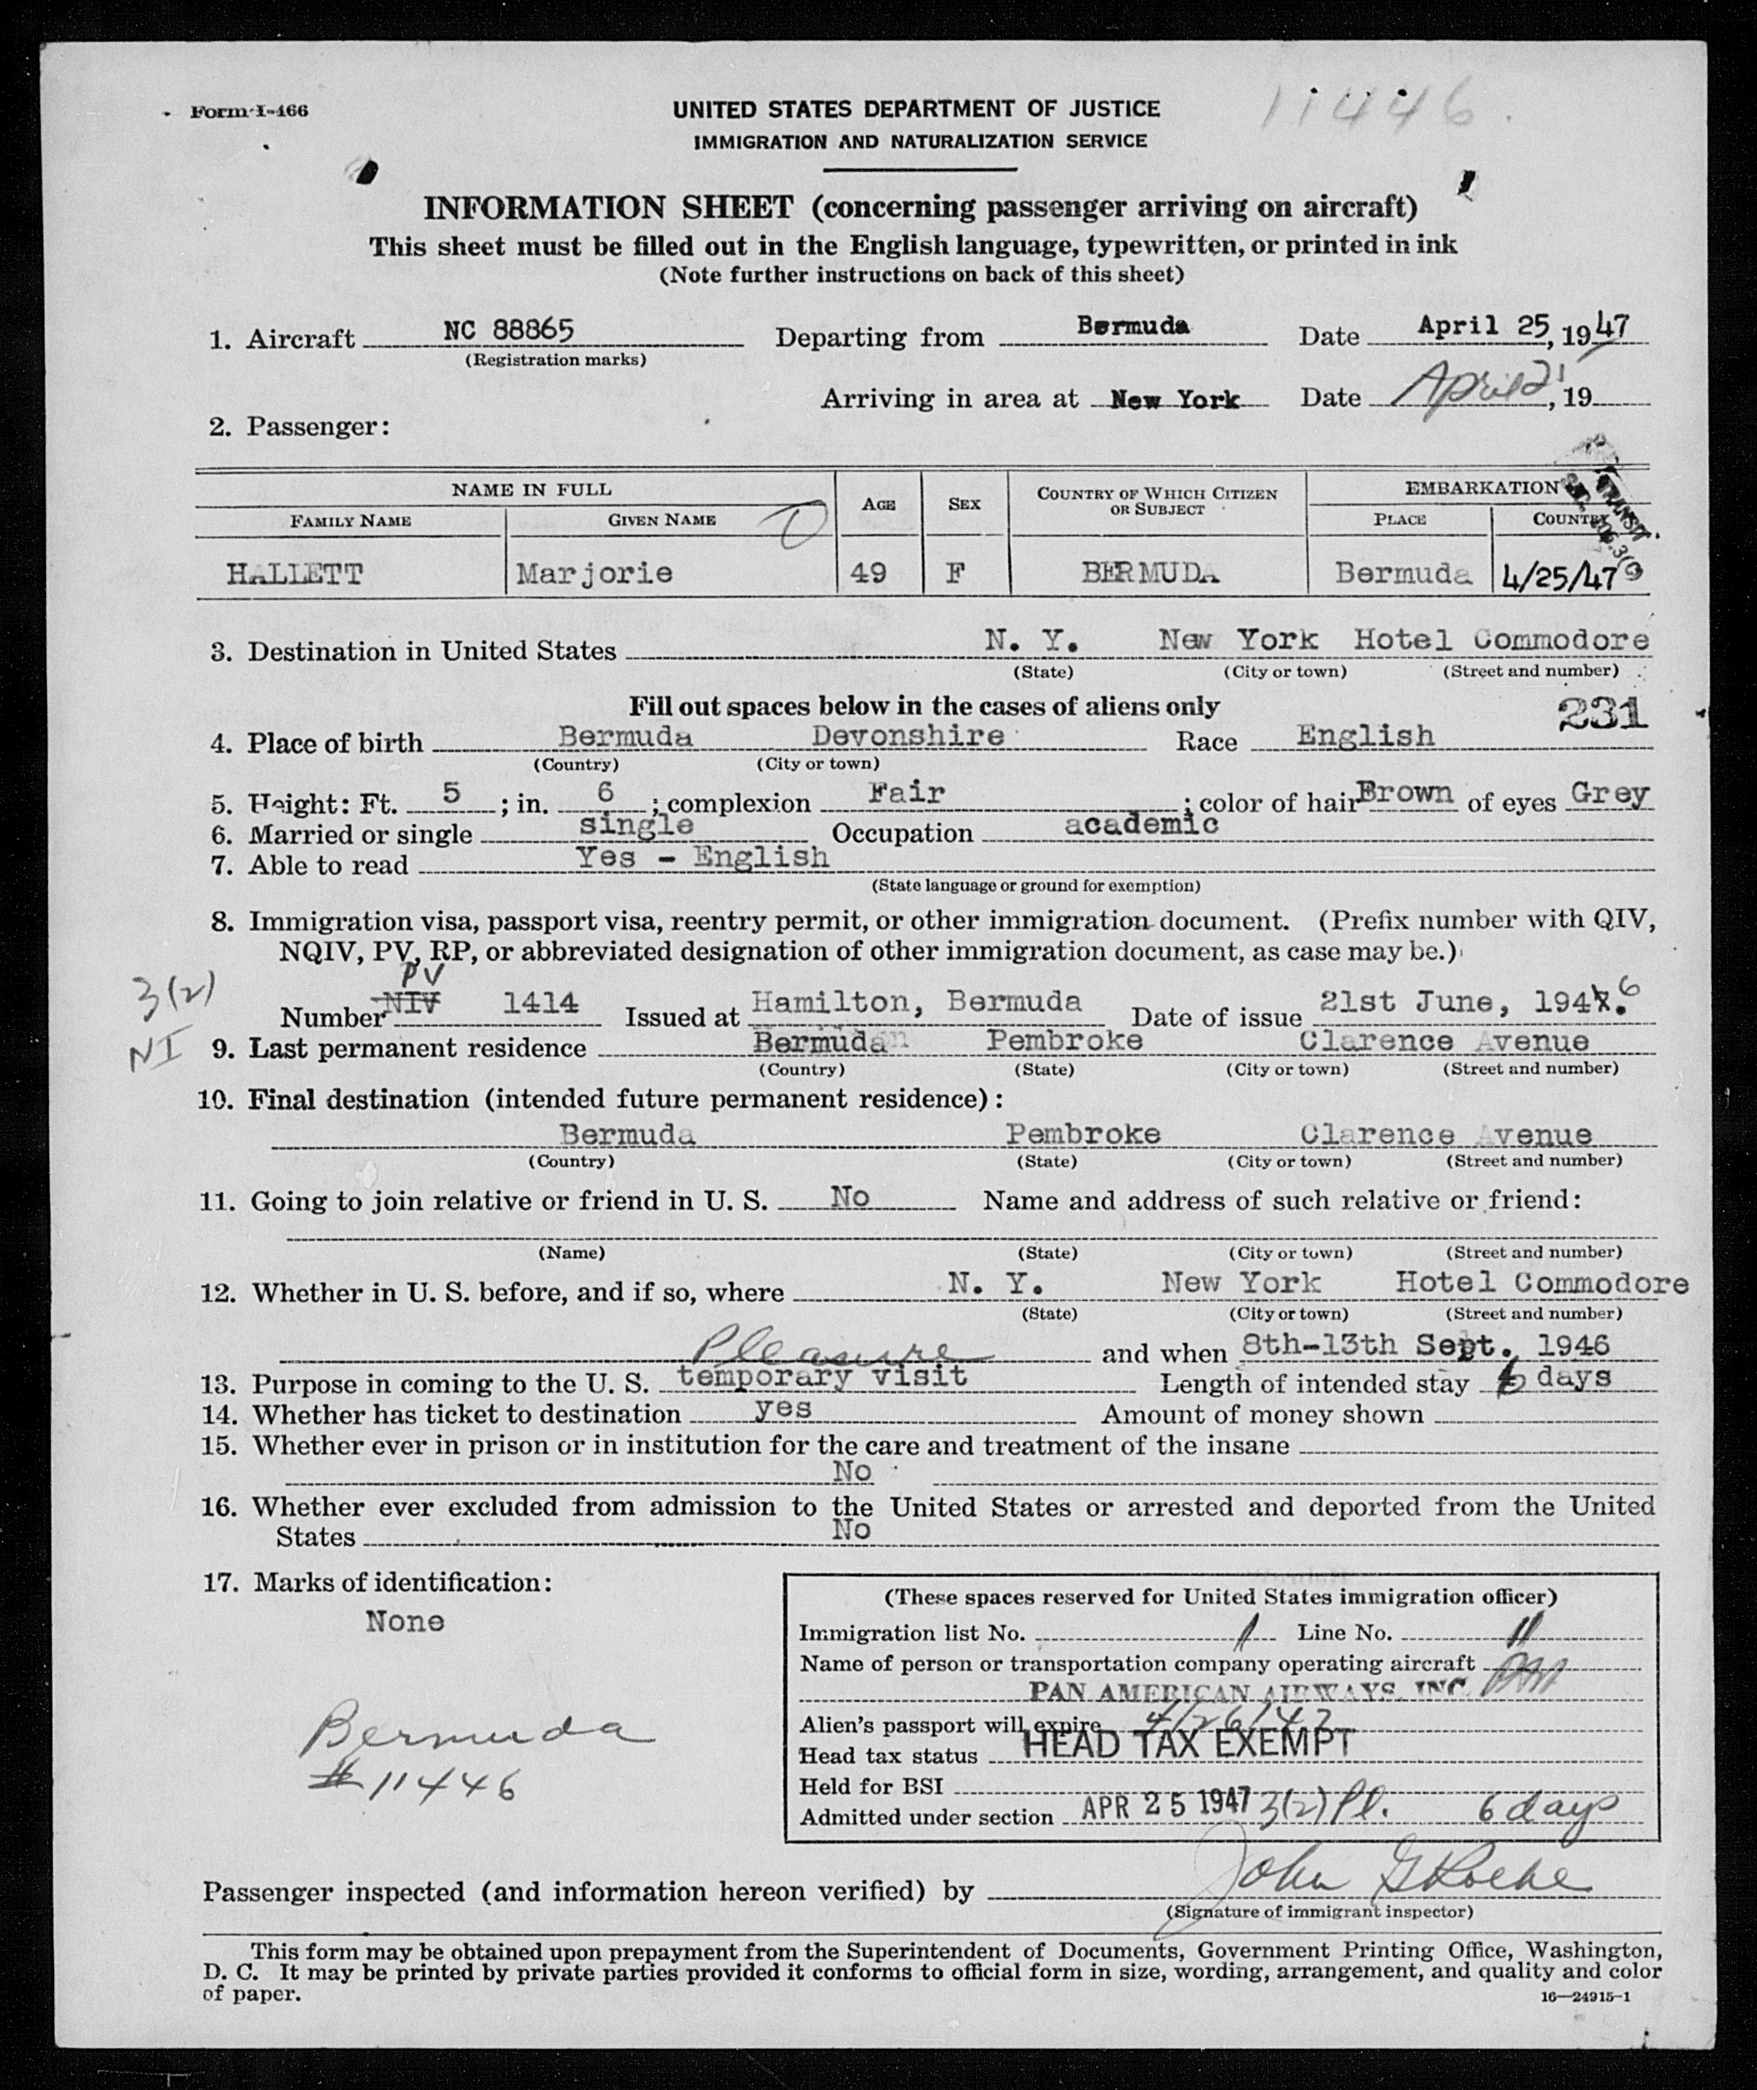 Form I-466
UNITED STATES DEPARTMENT OF JUSTICE
11446
IMMIGRATION AND NATURALIZATION SERVICE
INFORMATION SHEET (concerning passenger arriving on aircraft)
This sheet must be filled out in the English language, typewritten, or printed in ink
(Note further instructions on back of this sheet)
1. Aircraft NC 88865 Departing from Bermuda Date April 25, 1947
(Registration marks)
Arriving in area at New York Date April 2, 19
2. Passenger:
NAME IN FULL AGE SEX COUNTRY OF WHICH CITIZEN OR SUBJECT EMBARKATION
FAMILY NAME GIVEN NAME PLACE COUNTRY
TRANSIT
HALLETT Marjorie 49 F BERMUDA Bermuda 4/25/47
3. Destination in United States N. Y. New York Hotel Commodore
(State) (City or town) (Street and number)
Fill out spaces below in the cases of aliens only
231
4. Place of birth Bermuda Devonshire Race English
(Country) (City or town)
5. Height: Ft. 5 ; in. 6 ; complexion Fair ; color of hair Brown of eyes Grey
6. Married or single single Occupation academic
7. Able to read Yes - English
(State language or ground for exemption)
8. Immigration visa, passport visa, reentry permit, or other immigration document. (Prefix number with QIV,
NQIV, PV, RP, or abbreviated designation of other immigration document, as case may be.)
3(2) PV
Number NIV 1414 Issued at Hamilton, Bermuda Date of issue 21st June, 1947. 6
NI 9. Last permanent residence Bermuda Pembroke Clarence Avenue
(Country) (State) (City or town) (Street and number)
10. Final destination (intended future permanent residence):
Bermuda Pembroke Clarence Avenue
(Country) (State) (City or town) (Street and number)
11. Going to join relative or friend in U. S. No Name and address of such relative or friend:
(Name) (State) (City or town) (Street and number)
12. Whether in U. S. before, and if so, where N. Y. New York Hotel Commodore
(State) (City or town) (Street and number)
Pleasure and when 8th-13th Sept. 1946
13. Purpose in coming to the U. S. temporary visit Length of intended stay 6 days
14. Whether has ticket to destination yes Amount of money shown
15. Whether ever in prison or in institution for the care and treatment of the insane
No
16. Whether ever excluded from admission to the United States or arrested and deported from the United
States No
17. Marks of identification:
None
Bermuda
# 11446
(These spaces reserved for United States immigration officer)
Immigration list No. 1 Line No. 11
Name of person or transportation company operating aircraft
PAN AMERICAN AIRWAYS, INC.
Alien's passport will expire 4/26/47
Head tax status HEAD TAX EXEMPT
Held for BSI
Admitted under section APR 25 1947 3(2) Pl. 6 days
Passenger inspected (and information hereon verified) by John G Roche
(Signature of immigrant inspector)
This form may be obtained upon prepayment from the Superintendent of Documents, Government Printing Office, Washington,
D. C. It may be printed by private parties provided it conforms to official form in size, wording, arrangement, and quality and color
of paper.
16—24915-1